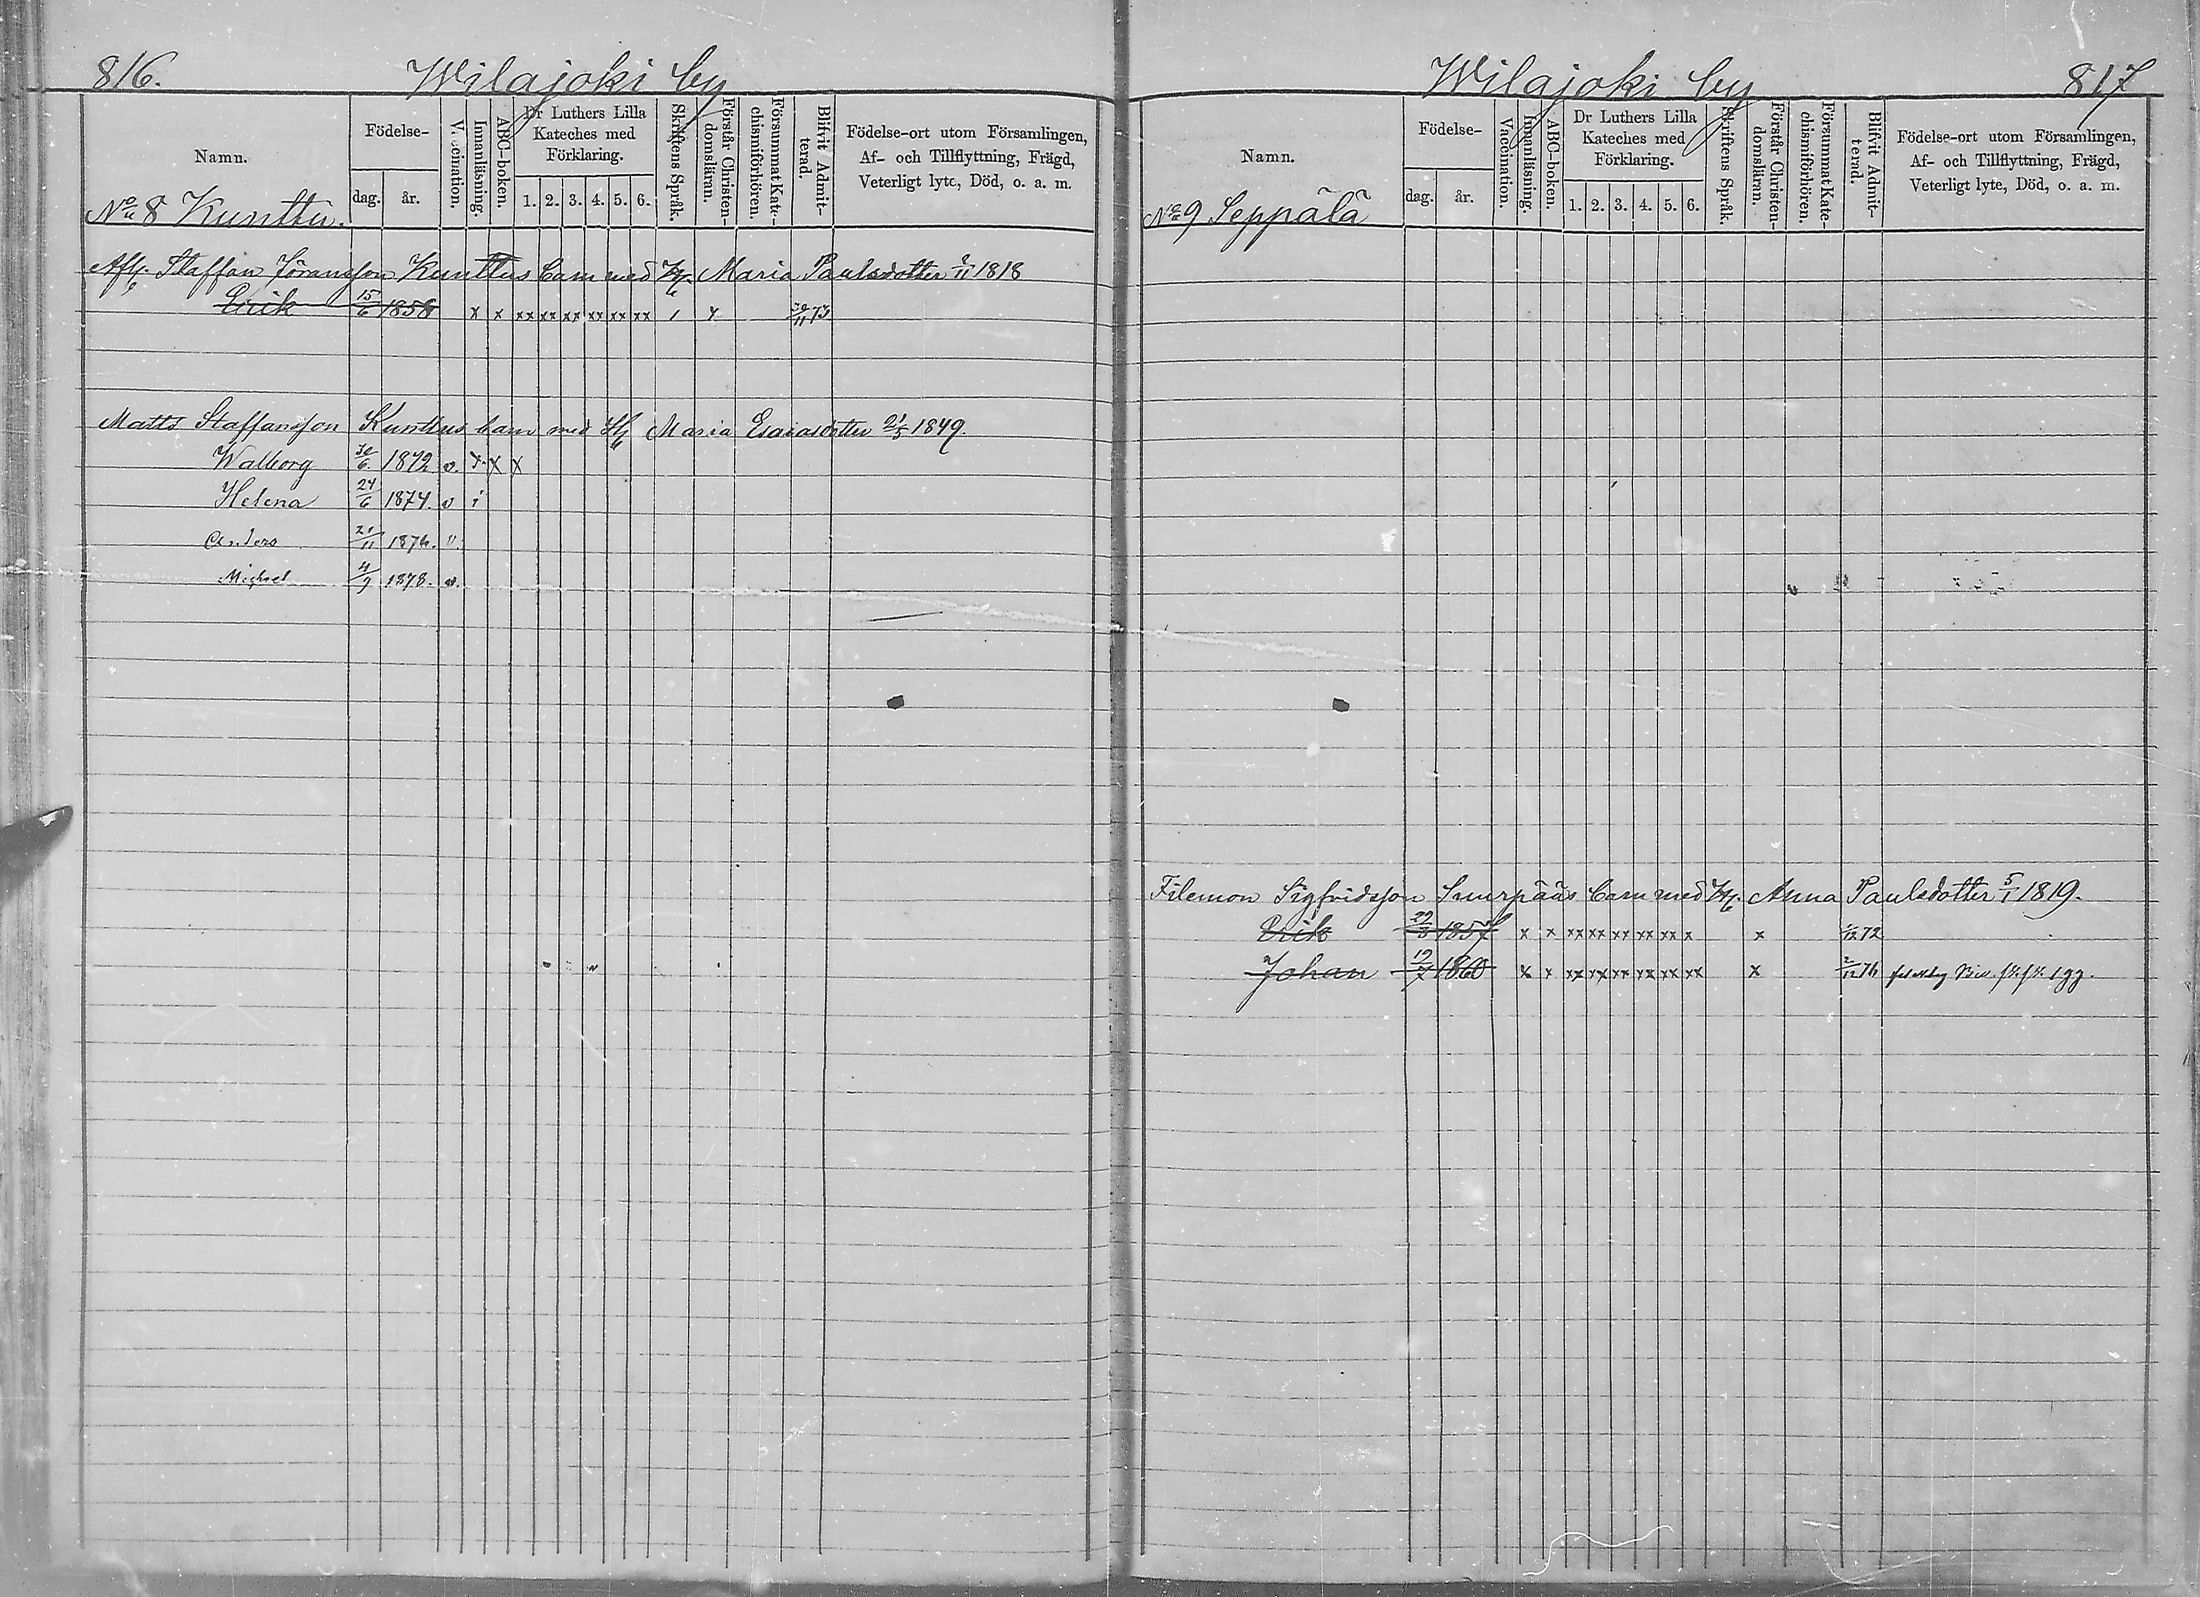 816.
Wilajoki by
Namn.
Födelse-
dag.
år.
Vaccination.
Innanläsning.
ABC-boken.
Dr Luthers Lilla
Kateches med
Förklaring.
1. 2. 3. 4. 5. 6.
Skriftens Språk.
Förstår Christen-
domsläran.
Försummat Kate-
chismiförhören.
Blifvit Admit-
terad.
Födelse-ort utom Församlingen,
Af- och Tillflyttning, Frägd,
Veterligt lyte, Död, o. a. m.
No 8 Kunttu.
Staffan Jöransson Kunttus barn med Maria Paulsdotter 1818
Erik 15/6 1858 x x xx xx xx xx xx xx 1 x 30/11 73
Matts Staffansson Kunttus barn med Maria Esaiasdotter 1849.
Walborg 30/6 1872 v. x x x
Helena 24/6 1874. v i
Anders 21/11 1876. v.
Michael 4/9 1878. v.
Wilajoki by
817
Namn.
Födelse-
dag.
år.
Vaccination.
Innanläsning.
ABC-boken.
Dr Luthers Lilla
Kateches med
Förklaring.
1. 2. 3. 4. 5. 6.
Skriftens Språk.
Förstår Christen-
domsläran.
Försummat Kate-
chismiförhören.
Blifvit Admit-
terad.
Födelse-ort utom Församlingen,
Af- och Tillflyttning, Frägd,
Veterligt lyte, Död, o. a. m.
No 9 Seppälä
Filemon Sigfridsson Suurpääs barn med Anna Paulsdotter 5/1 1819.
Erik 1857 x x xx xx xx xx xx x x 72
Johan 19/7 1860 x x xx xx xx xx xx xx x 2/12 76